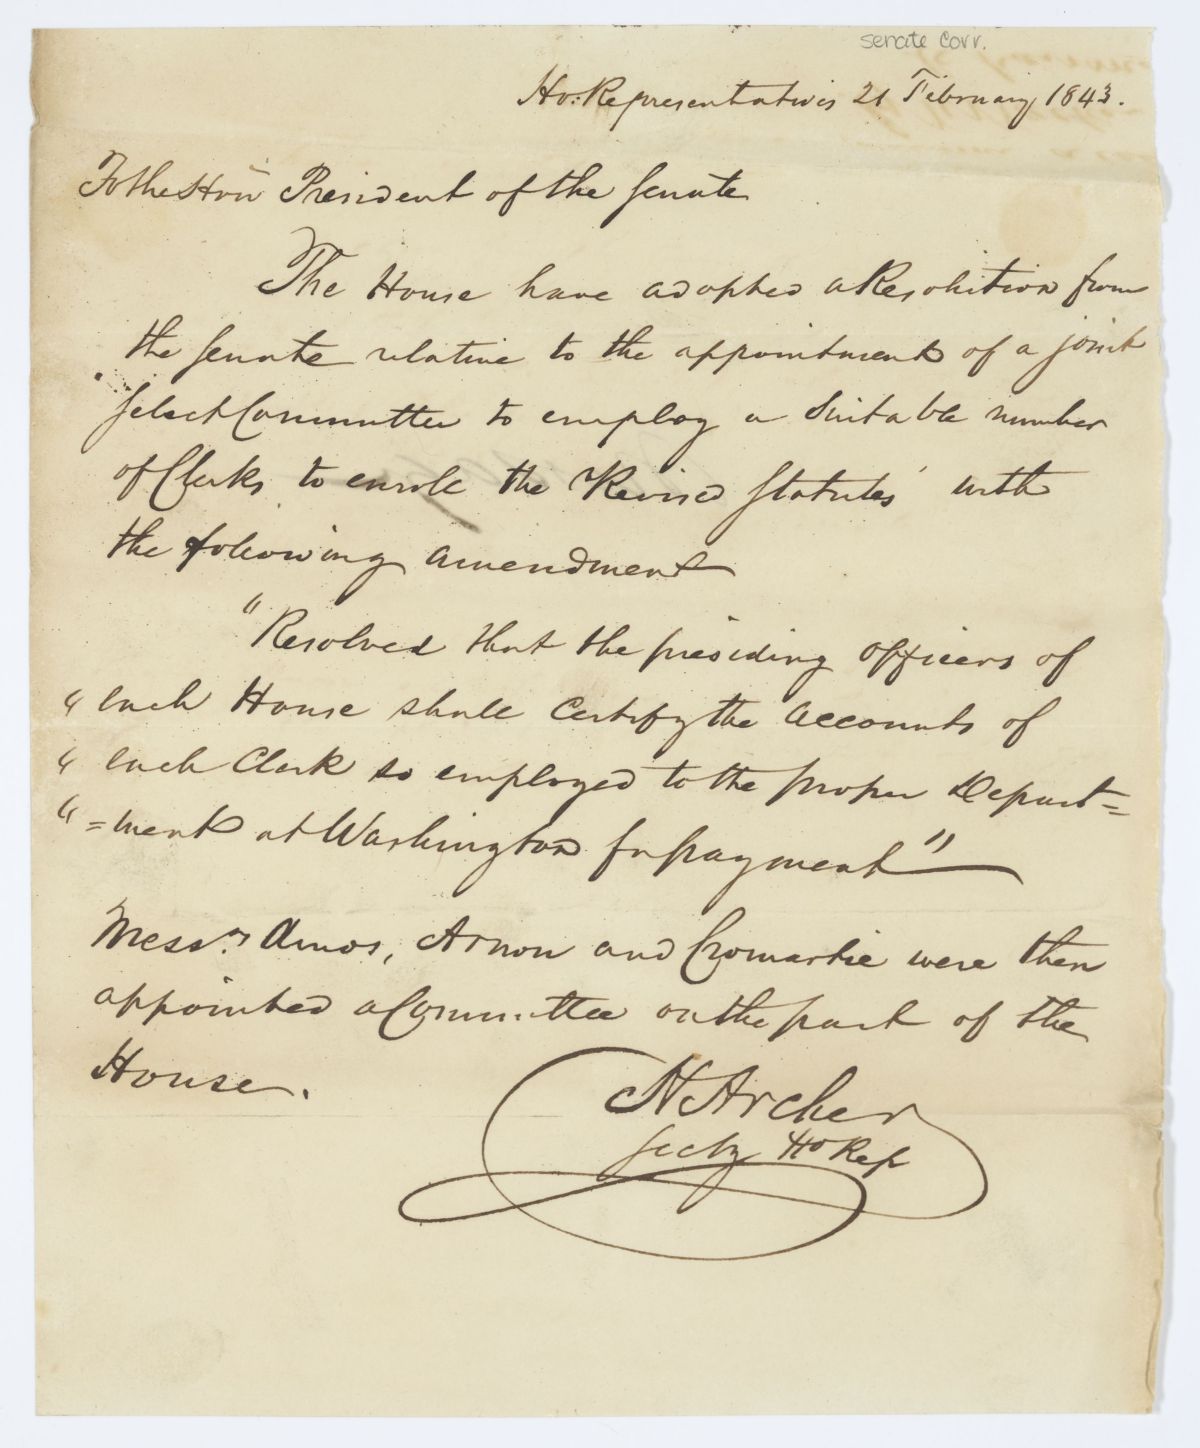 senate corr.
Ho: Representativis 21 February 1843.
To the Hon President of the Senate
The House have adopted a Resolution from
the Senate relative to the appointment of a joint
Select Committee to employ a Suitable number
of Clerks to enrole the Revised Statutes with
the following amendment
"Resolved that the presiding officers of
" each House shall certify the accounts of
" each Clerk so employed to the proper Depart=
" =ment at Washington for payment"
Messrs Amos, Arnow and Cromartie were then
appointed a Committee on the part of the
House.
N Archer
Secty Ho Rep